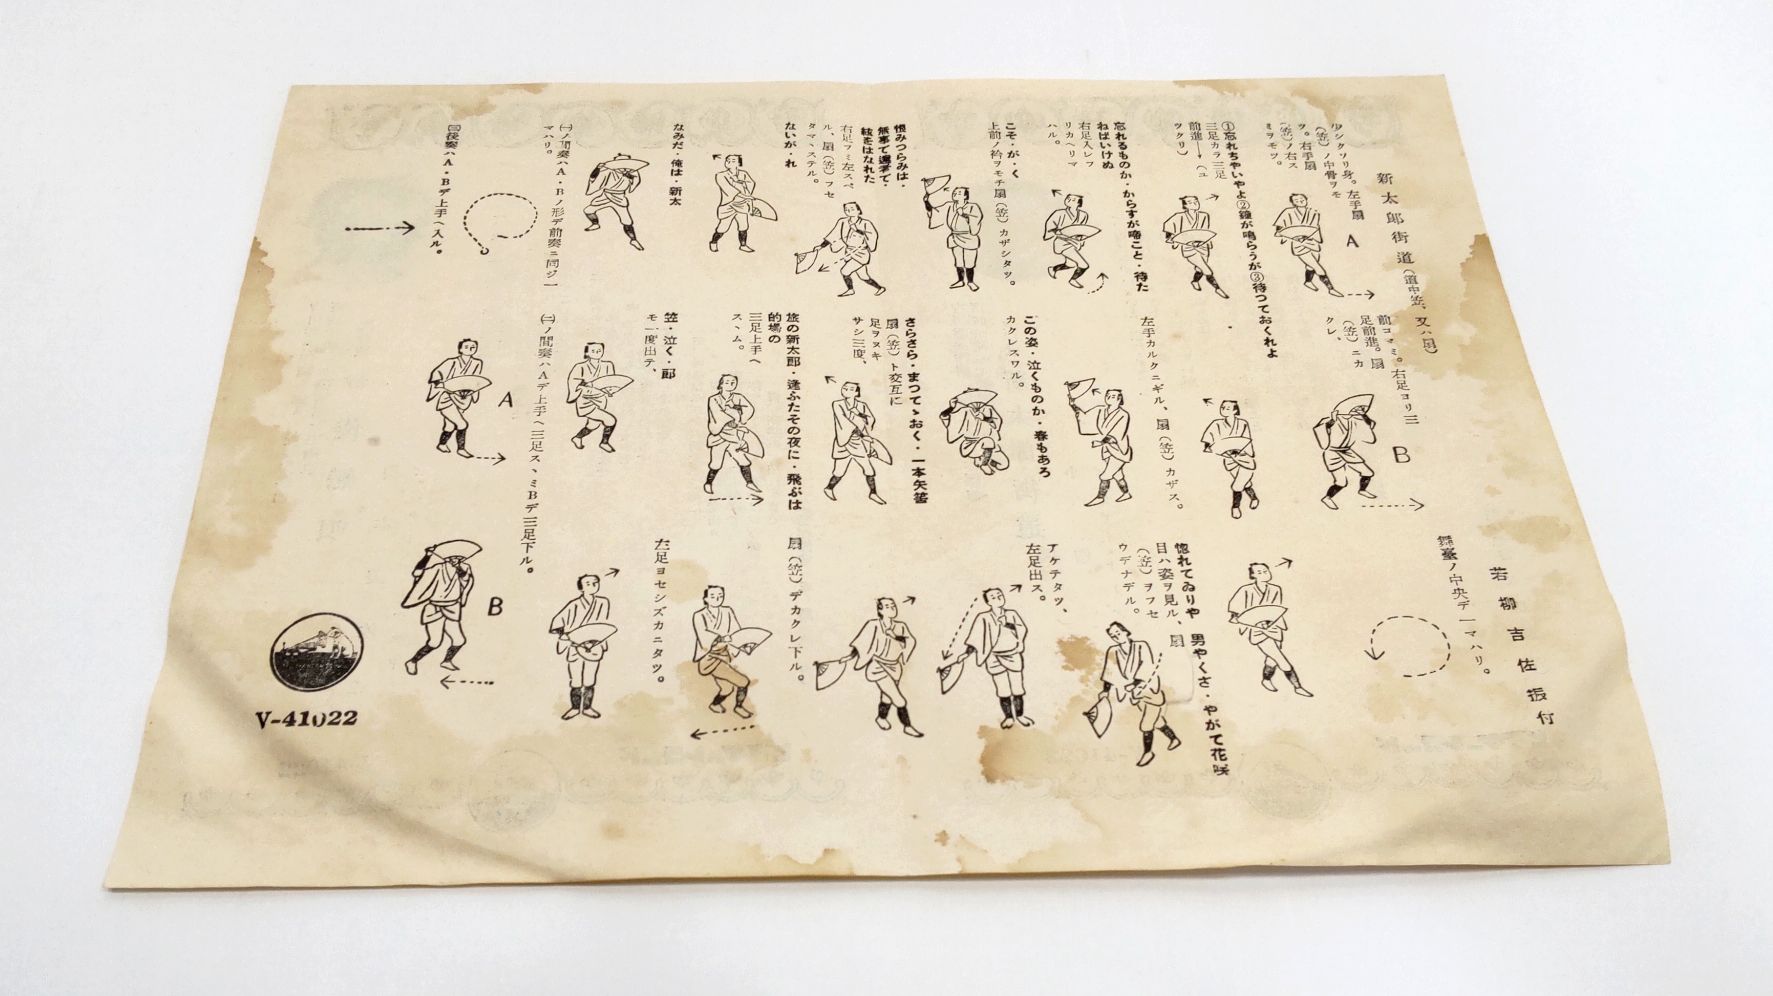 新太郎街道(道中笠、又ハ扇)
若柳吉佐振付
少シクソリ身。左手扇
(笠)ノ中骨ヲモ
ツ。右手扇
(笠)ノ右ス
ミヲモツ。
A
前コマミ。右足ヨリ三
足前進。扇
(笠)ニカ
クレ、
B
舞臺ノ中央デ一マハリ。
①忘れちやいやよ②鐘が鳴らうが③待つておくれよ
三足カラ三足
前進→(ユ
ツクリ)
忘れるものか・からすが啼こと・待た
ねばいけぬ
右足入レフ
リカヘリマ
ハル。
左手カルクニギル、扇(笠)カザス。
惚れてゐりや 男やくさ・やがて花咲
目ハ姿ヲ見ル、扇
(笠)ヲフセ
ウデナデル。
こそ・が・く
上前ノ衿ヲモチ扇(笠)カザシタツ。
この姿・泣くものか・春もあろ
カクレスワル。
アケテタツ、
左足出ス。
恨みつらみは・
無事で還事で・
紋をはなれた
右足フミ左スベ
ル、扇(笠)フセ
タマヽステル。
さらさら・まつてゝおく・一本矢筈
扇(笠)ト交互に
足ヲヌキ
サシ三度、
ないが・れ
旅の新太郎・逢ふたその夜に・飛ぶは
的場の
三足上手ヘ
スヽム。
扇(笠)デカクレ下ル。
なみだ・俺は・新太
笠・泣く・郎
モ一度出テ、
左足ヨセシズカニタツ。
㈠ノ間奏ハA・Bノ形デ前奏ニ同ジ一
マハリ。
㈡ノ間奏ハAデ上手ヘ三足スヽミBデ三足下ル。
A
B
㈢後奏ハA・Bデ上手ヘ入ル。
V-41022